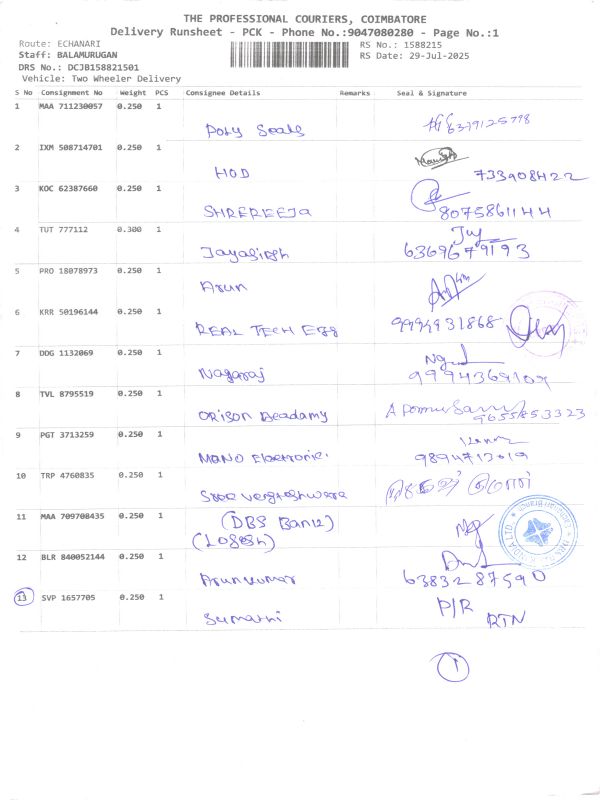 THE PROFESSIONAL COURIERS, COIMBATORE
Delivery Runsheet - PCK - Phone No.:9047080280 - Page No.:1
Route: ECHANARI RS No.: 1588215
Staff: BALAMURUGAN RS Date: 29-Jul-2025
DRS No.: DCJB158821501
Vehicle: Two Wheeler Delivery
S No Consignment No Weight PCS Consignee Details Remarks Seal & Signature
1 MAA 711230057 0.250 1
Poly Seals 6379125778
2 IXM 508714701 0.250 1
HOD 733908422
3 KOC 62387660 0.250 1
SHREREEJA 8075861144
4 TUT 777112 0.300 1
Jayasingh 6369679193
5 PRO 18078973 0.250 1
Arun
6 KRR 50196144 0.250 1
REAL TECH Egg 9994931868
7 DDG 1132069 0.250 1
Nagaraj 9994369109
8 TVL 8795519 0.250 1
ORISON Deadamy 9655853323
9 PGT 3713259 0.250 1
MANO Electronic 9894713019
10 TRP 4760835 0.250 1
Sree
11 MAA 709708435 0.250 1
(DBS Bank)
(Logesh)
12 BLR 840052144 0.250 1
Arunkumar 6383287590
13 SVP 1657705 0.250 1
Sumathi P/R
RTN
1